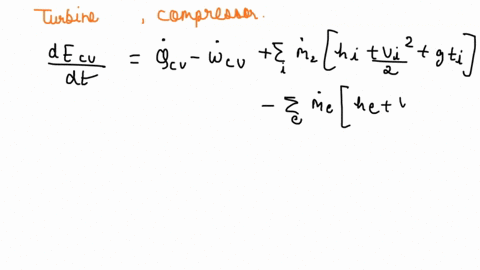 Turbine , compressor.
dE_cv/dt = Q̇_cv - ẇ_cv + Σ_i ṁ_i [h_i + v_i²/2 + g t_i]
- Σ_e ṁ_e [h_e + V